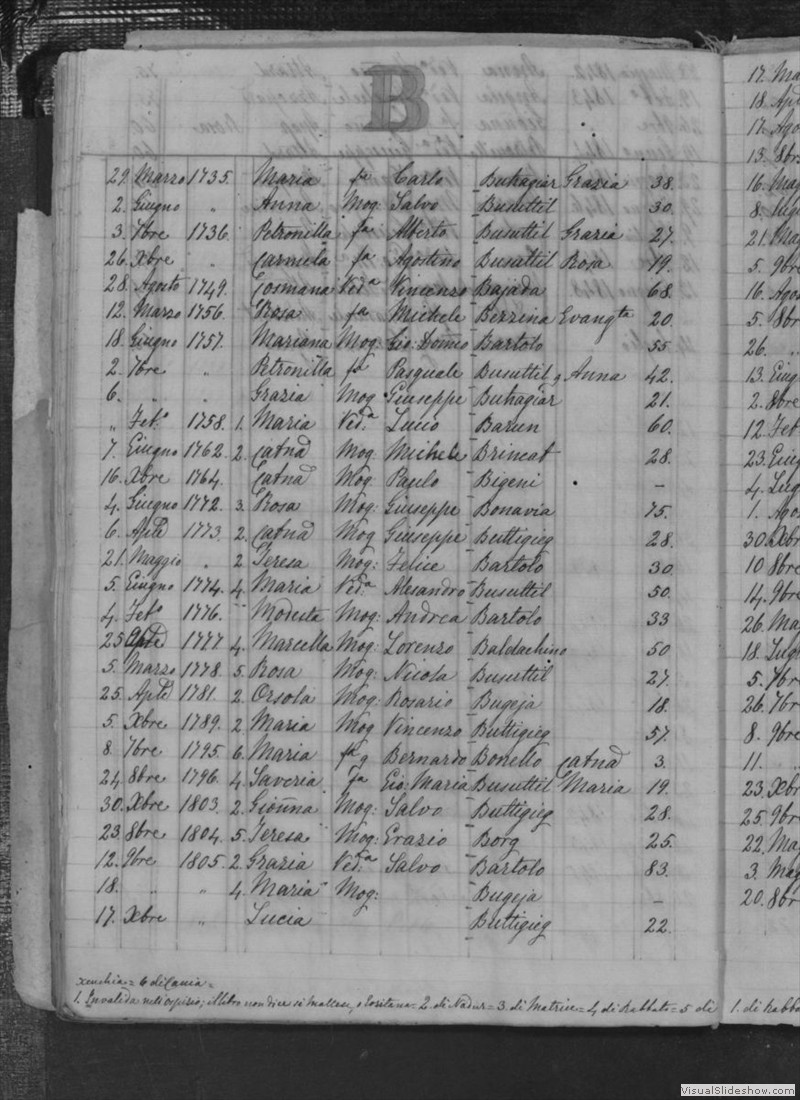 B
29. Marzo 1735. Maria fa Carlo Buhagiar Grazia 38.
2. Giugno " Anna Mog: Salvo Busuttil 30.
3. 7bre 1736 Petronilla fa Alberto Busuttil Grazia 27.
26. Xbre " Carmela fa Agostino Busuttil Rosa 19.
28. Agosto 1749. Cosmana Veda Vincenzo Bajada 68.
12. Marzo 1756. Rosa fa Michele Bezzina Evangta 20.
18. Giugno 1757. Mariana Mog: Gio: Domco Bartolo 55
2. 7bre " Petronilla fa Pasquale Busuttil q Anna 42.
6. " " Grazia Mog Giuseppe Buhagiar 21.
" Feb.o 1758. 1. Maria Ved.a Lucio Barun 60.
7. Giugno 1762. 2. Catna Mog. Michele Brincat 28.
16. Xbre 1764. Catna Mog. Paulo Bigeni –
4. Giugno 1772. 3. Rosa Mog: Giuseppe Bonavia 75.
6. Aple 1773. 2. Catna Mog Giuseppe Buttigieg 28.
21. Maggio " 2 Teresa Mog: Felice Bartolo 30.
5. Giugno 1774. 4. Maria Ved.a Alesandro Busuttil 50.
4. Feb.o 1776. " Modesta Mog: Andrea Bartolo 33
25. 1777 4. Marcella Mog: Lorenzo Baldachino 50
5. Marzo 1778. 5. Rosa Mog: Nicola Busuttil 27.
25. Aple 1781. 2. Orsola Mog: Rosario Bugeja 18.
5. Xbre 1789. 2. Maria Mog Vincenzo Buttigieg 57.
8. 7bre 1795. 6. Maria fa q Bernardo Bonello Catna 3.
24. 8bre 1796. 4. Saveria fa Gio: Maria Busuttil Maria 19.
30. Xbre 1803. 2. Gionna Mog: Salvo Buttigieg 28.
23. 8bre 1804. 5. Teresa Mog: Grazio Borg 25.
12. 9bre 1805. 2. Grazia Ved.a Salvo Bartolo 83.
18. " " 4. Maria Mog: Bugeja –
17. Xbre " Lucia Buttigieg 22.
Xenchia = 6 di Cauia =
1. Invalida nell'ospizio; il libro non dice si Maltese, o Gositana = 2. di Nadur = 3. di Matrice = 4 di Rabbato = 5 di
17. Ma
18. Apl
17. Ago
13. 8bre
16. Mag
8.
21. Ma
5. 9bre
16. Ago
5. 8br
26. "
13. Giug
2. 8bre
12. Feb
23. Giug
4. Lug
1. Ago
30. Xbr
10 8bre
14. 9bre
26. Ma
18. Lug
5. 7br
26. 7br
8. 9bre
11. "
23. Xbr
25. 9br
22. Mag
3. Mag
20. 8br
1. di Rabba
VisualSlideshow.com